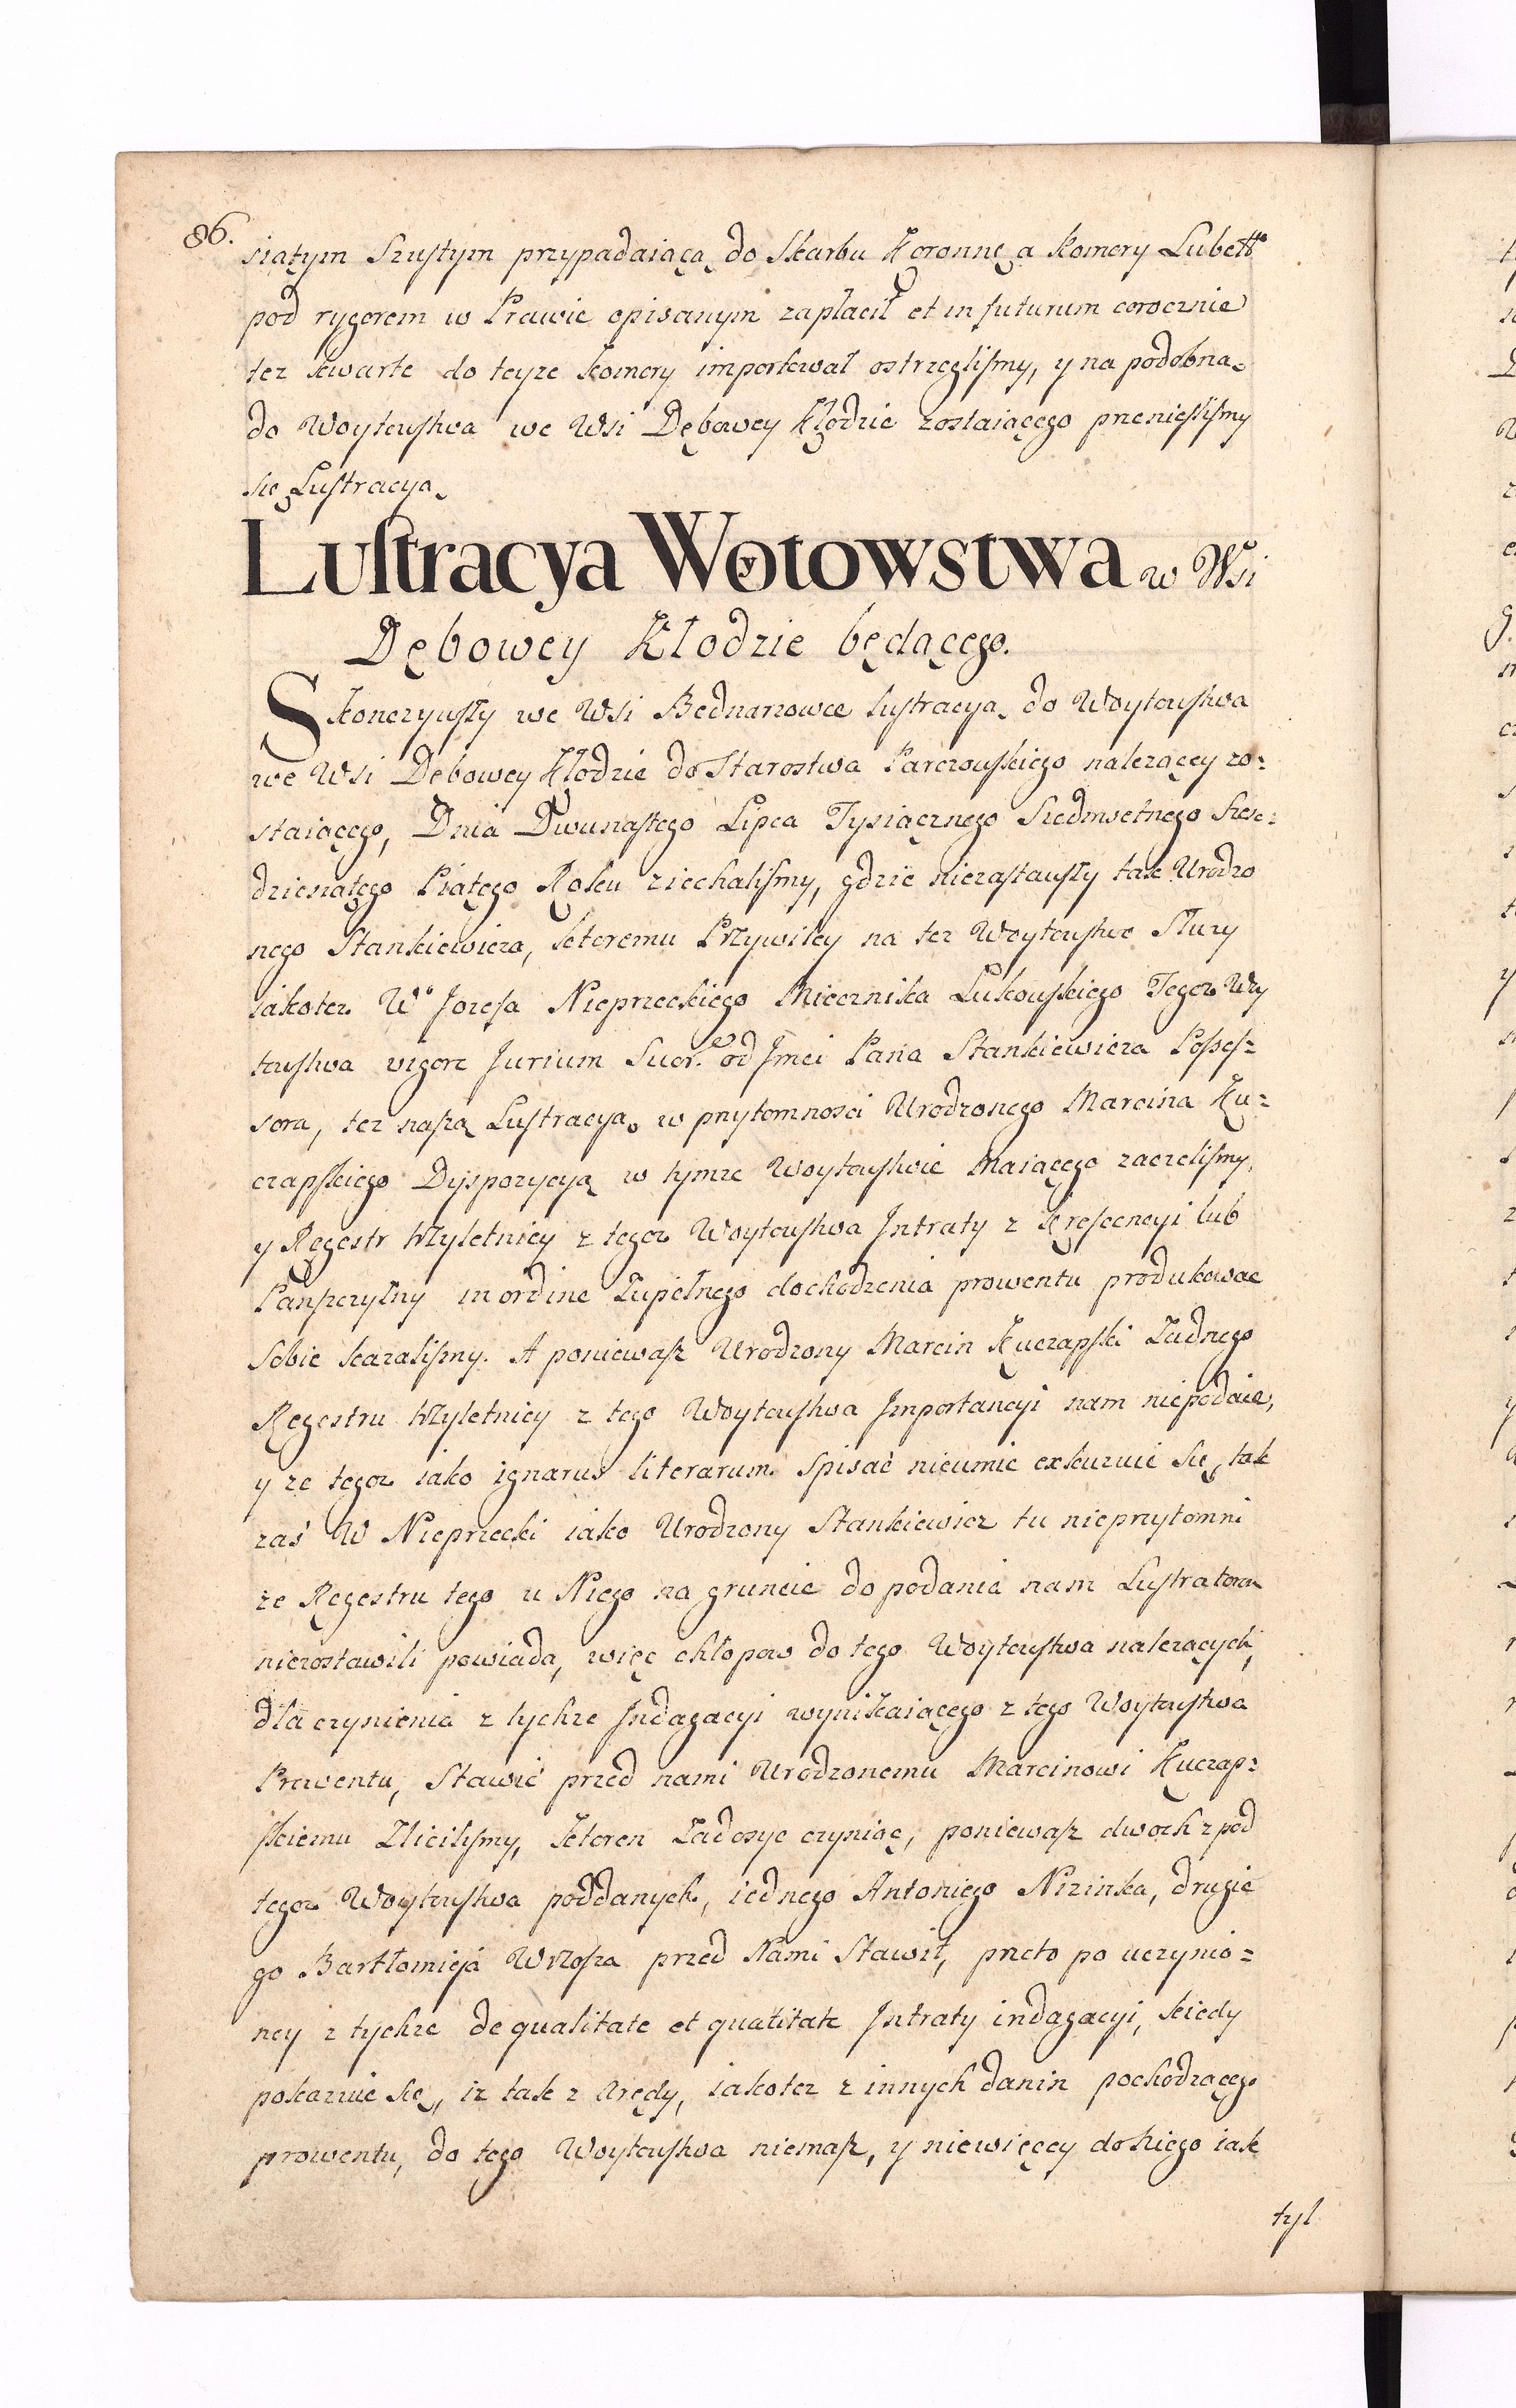 86.
siątym Szustym przypadaiącą do Skarbu Koronne͡ a komory Lubett͡
pod rygorem w Prawie opisanym zapłacił et in futurum corocznie
tez kwarte do teyze komory importował ostrzegliſmy, y na podobną
do Woytowſtwa we Wsi Dębowey Kłodzie zostaiącego przenieſliſmy
się Luſtracyą
Luſtracya Woytowstwa w Wsi
Dębowey Kłodzie będącego.
Skonczywſzy we Wsi Bednarzowce luſtracyą do Woytowſtwa
we Wsi Dębowey Kłodzie do Starostwa Parczowſkiego nalezącey zo=
staiącego, Dnia Dwunaſtego Lipca Tysiącznego Siedmsetnego Szesc=
dziesiątego Piątego Roku ziechaliſmy, gdzie niezaſtawſzy tak Urodzo
nego Stankiewicza, ktoremu Przywiley na tez Woytowſtwo Słuzy
iakotez W° Jozefa Nieprzeckiego Miecznika Łukowſkiego Tegoz Woy
towſtwa vigore Jurium Suor. od Jmci Pana Stankiewicza Poſseſ=
sora, tez naſzą Luſtracyą w przytomnosci Urodzonego Marcina Ku=
czapſkiego Dyspozycyą w tymze Woytowſtwie Maiącego zaczeliſmy,
y Regestr trzyletniey z tegoz Woytowſtwa Jntraty z Kreſcencyi lub
Panſzczyzny in ordine Zupełnego dochodzenia prowentu produkowac
Sobie kazaliſmy. A poniewaſz Urodzony Marcin Kuczapſki Zadnego
Regestru trzyletniey z tego Woytowſtwa Jmportancyi nam niepodaie,
y ze tegoz iako ignarus literarum Spisać nieumie exkuzuie się, tak
zaś W Nieprzecki iako Urodzony Stankiewicz tu nieprzytomni
ze Regestru tego u Niego na gruncie do podania nam Luſtratorom
niezostawili powiada, więc chłopow do tego Woytowſtwa nalezących,
dla czynienia z tychze Jndagacyi wynikaiącego z tego Woytowſtwa
Prowentu, Stawić przed nami Urodzonemu Marcinowi Kuczap=
ſkiemu Zleciliſmy, ktoren Zadosyc czyniąc, poniewaſz dwoch z pod
tegoz Woytowſtwa poddanych, iednego Antoniego Nizinka, drugie
go Bartłomieja Wrzoſza przed Nami Stawił, przeto po uczynio=
ney z tychze de qualitate et quatitate Jntraty indagacyi, kiedy
pokazuie się, iz tak z Arędy, iakotez z innych danin pochodzącego
prowentu, do tego Woytowſtwa niemaſz, y niewięcey do niego iak
tyl